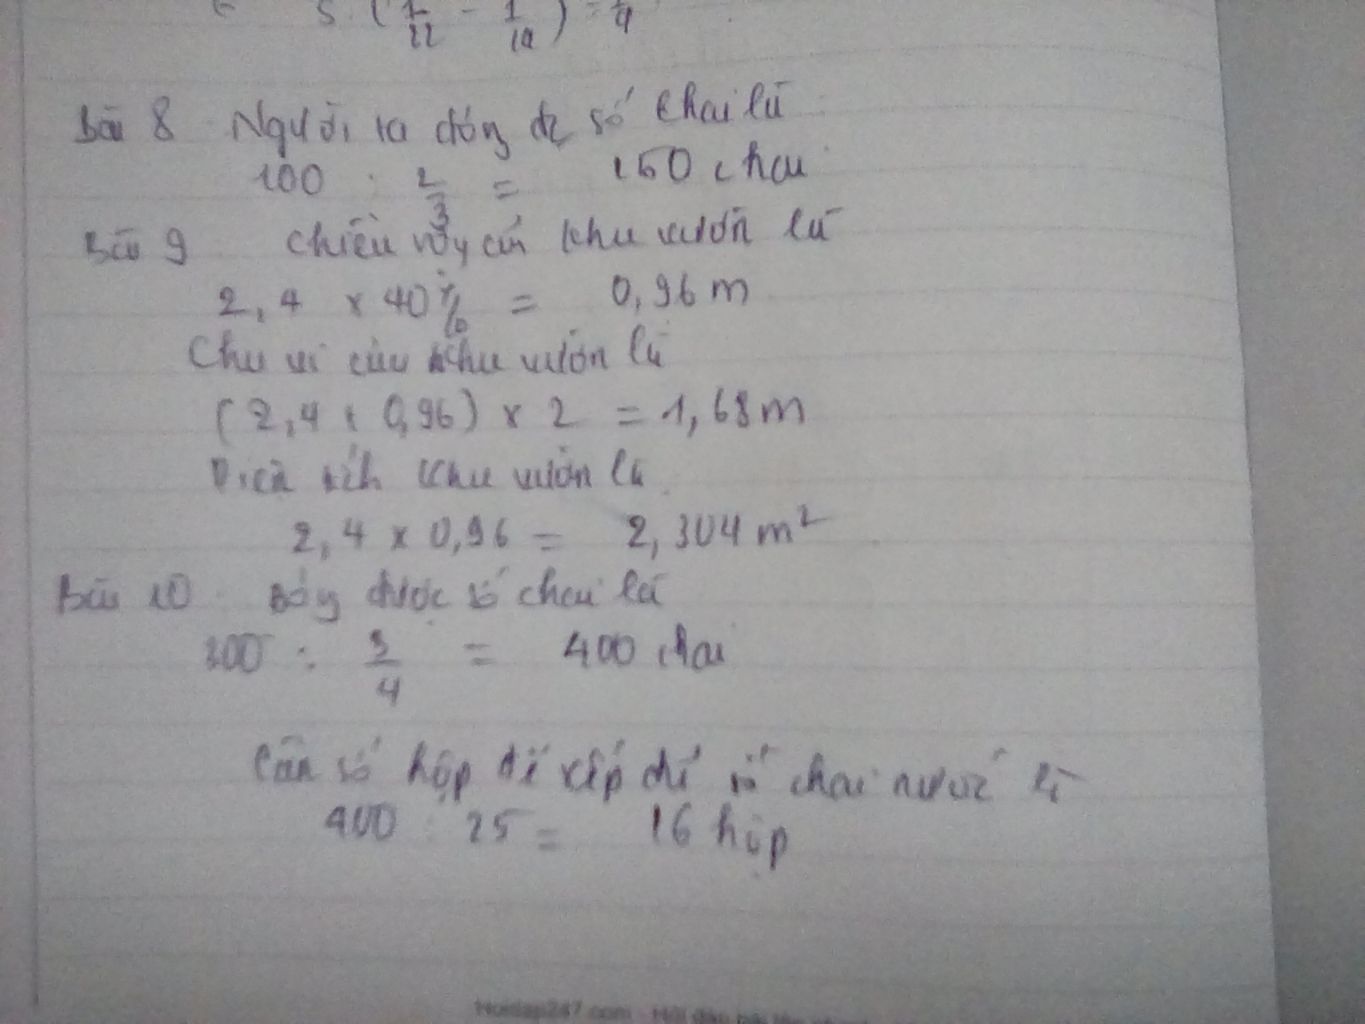 5. (1/22 - 1/19) = 1/4
Bài 8 Người ta đóng đc số chai là
100 : 2/3 = 150 chai
Bài 9 Chiều rộng của khu vườn là
2,4 x 40% = 0,96 m
Chu vi của khu vườn là
(2,4 + 0,96) x 2 = 1,68 m
Diện tích khu vườn là
2,4 x 0,96 = 2,304 m²
Bài 10 Đóng được số chai là
300 : 3/4 = 400 chai
Cần số hộp để xếp số chai nước là
400 : 25 = 16 hộp
Hoidap247.com - Hỏi đáp bài tập